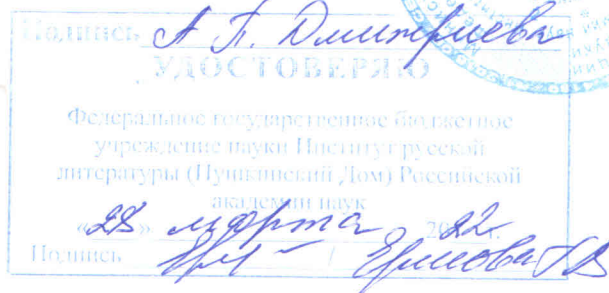 Подпись А П. Дмитриева
УДОСТОВЕРЯЮ
Федеральное государственное бюджетное
учреждение науки Институт русской
литературы (Пушкинский Дом) Российской
академии наук
«28» марта 2022 г.
Подпись /